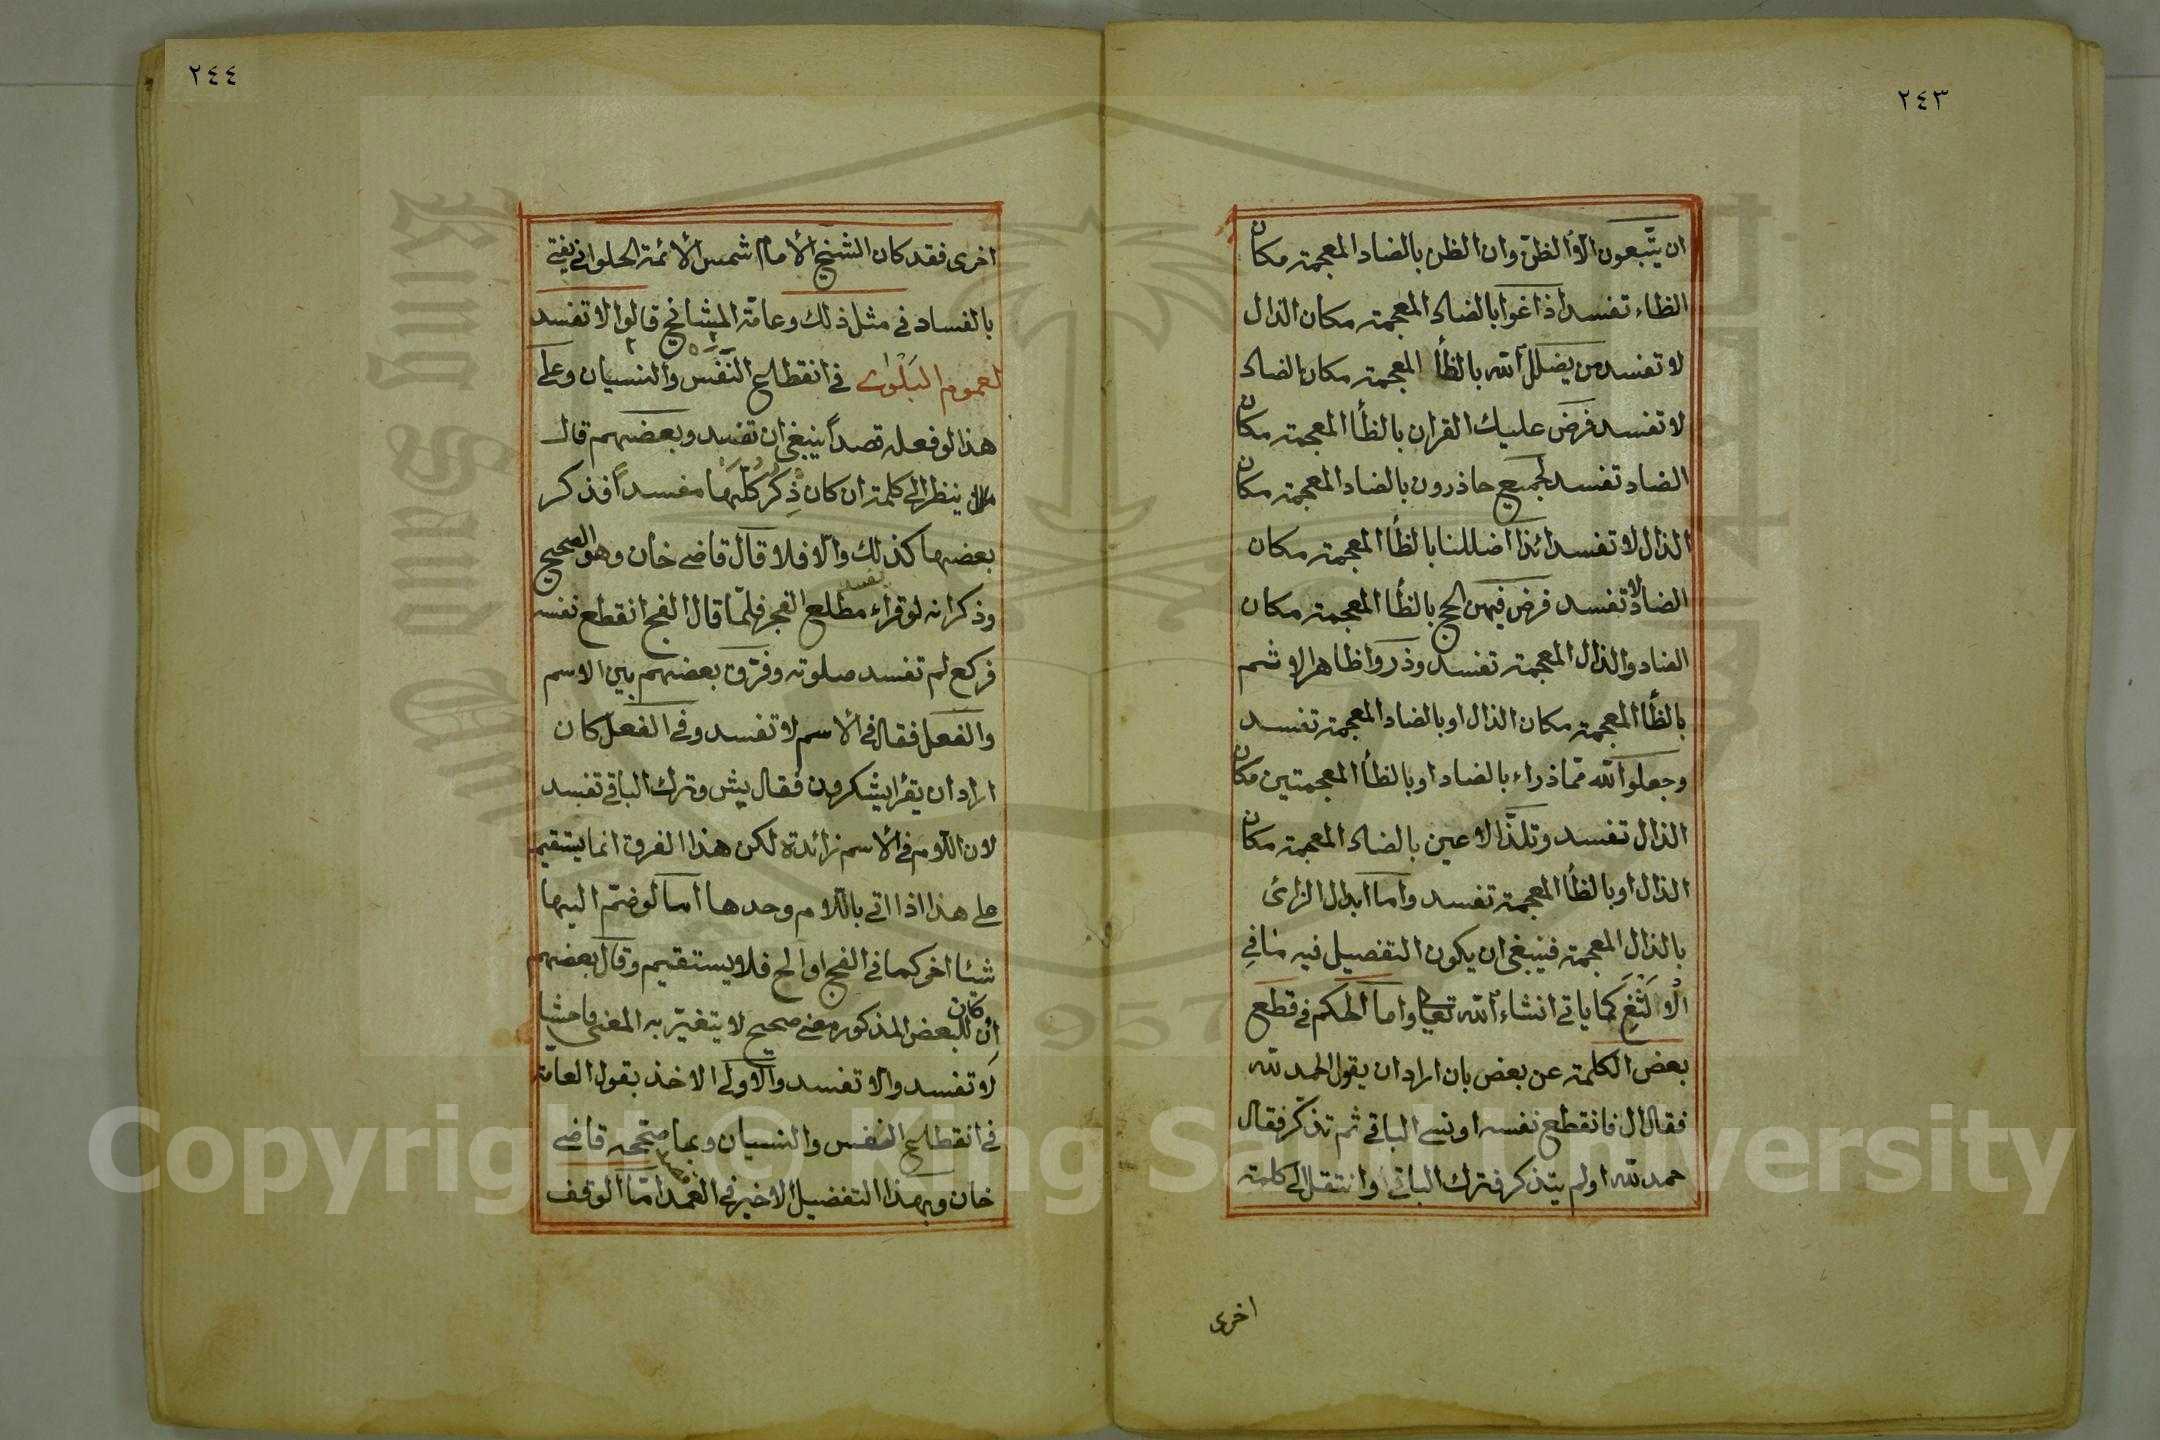 ٢٤٣
ان يتّبعون الا الظنّ وان الظن بالضاد المعجمة مكان
الظاء تفسد اذاغوا بالضاد المعجمة مكان الذال
لا تفسد من يضلل الله بالظأ المعجمة مكان الضاد
لا تفسد فرض عليك القران بالظأ المعجمة مكان
الضاد تفسد لجميع حاذرون بالضاد المعجمة مكان
الذال لا تفسد ائذا اضللنا بالظأ المعجمة مكان
الضاد لا تفسد فرض فيهن الحج بالظأ المعجمة مكان
الضاد والذال المعجمة تفسد وذروا ظاهر الاثم
بالظأ المعجمة مكان الذال او بالضاد المعجمة تفسد
وجعلوا لله ممّا ذراء بالضاد او بالظأ المعجمتين مكان
الذال تفسد وتلذّ الاعين بالضاد المعجمة مكان
الذال او بالظأ المعجمة تفسد واما ابدال الزائ
بالذال المعجمة فينبغي ان يكون التفصيل فيه ما في
الْاَلْثَغِ كما ياتي انشاء الله تعالى واما الحكم في قطع
بعض الكلمة عن بعض بان اراد ان يقول الحمد لله
فقال ال فانقطع نفسه او نسي الباقي ثم تذكّر فقال
حمد لله او لم يتذكر فترك الباقي وانتقل الى كلمة
اخرى
٢٤٤
اخرى فقد كان الشيخ الأمام شمس الأئمة الحلواني يفتي
بالفساد في مثل ذلك وعامّة المشائخ قالوا لا تفسد
لعموم البَلْوٰى في انقطاع النَّفَس والنسيان وعلى
هذا لو فعله قصداً ينبغي ان تفسد وبعضهم قال
ينظر الى كلمة ان كان ذِكر كُلّهَا مفسداً فذكر
بعضها كذلك والا فلا قال قاضي خان وهو الصحيح
وذكر انه لو قراء مطلع الفجر فلمّا قال الفج انقطع نفسه
فركع لم تفسد صلوته وفرّق بعضهم بين الاسم
والفعل فقال في الأسم لا تفسد وفي الفعل كان
اراد ان يقرأ يشكرون فقال يش وترك الباقي تفسد
لان اللام في الأسم زائدة لكن هذا الفرق انما يستقيم
على هذا اذا اتى باللام وحدها اما لو ضمّ اليها
شيئا اخر كما في الفج او الح فلا يستقيم وقال بعضهم
ان كان للبعض المذكور معنى صحيح لا يتغيّر به المعنى فاحشا
لا تفسد والا تفسد والاولى الاخذ بقول العامّة
في انقطاع النفس والنسيان وبما صحّحه قاضي
خان وبهذا التفضيل الاخير في العمد امّا الوقف
Copyright © King Saud University
1957